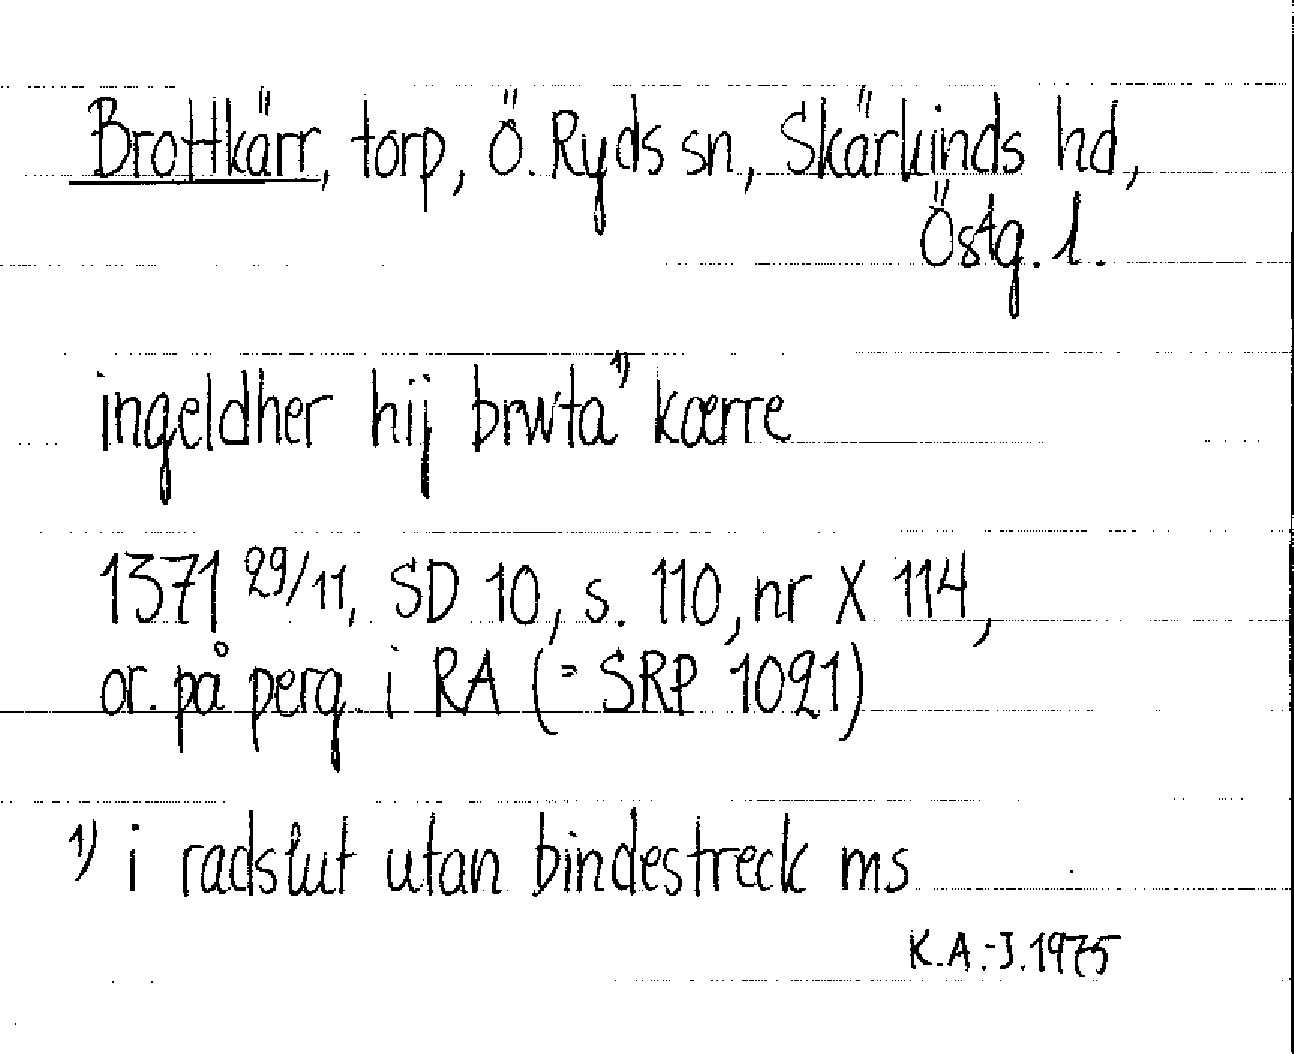 Brottkärr, torp, Ö. Ryds sn, Skärkinds hd,
Östg. l.
ingeldher hij brwta¹⁾ kærre
1371 29/11, SD 10, s. 110, nr X 114,
or. på perg. i RA (= SRP 1021)
¹⁾ i radslut utan bindestreck ms
K.A.-J. 1975